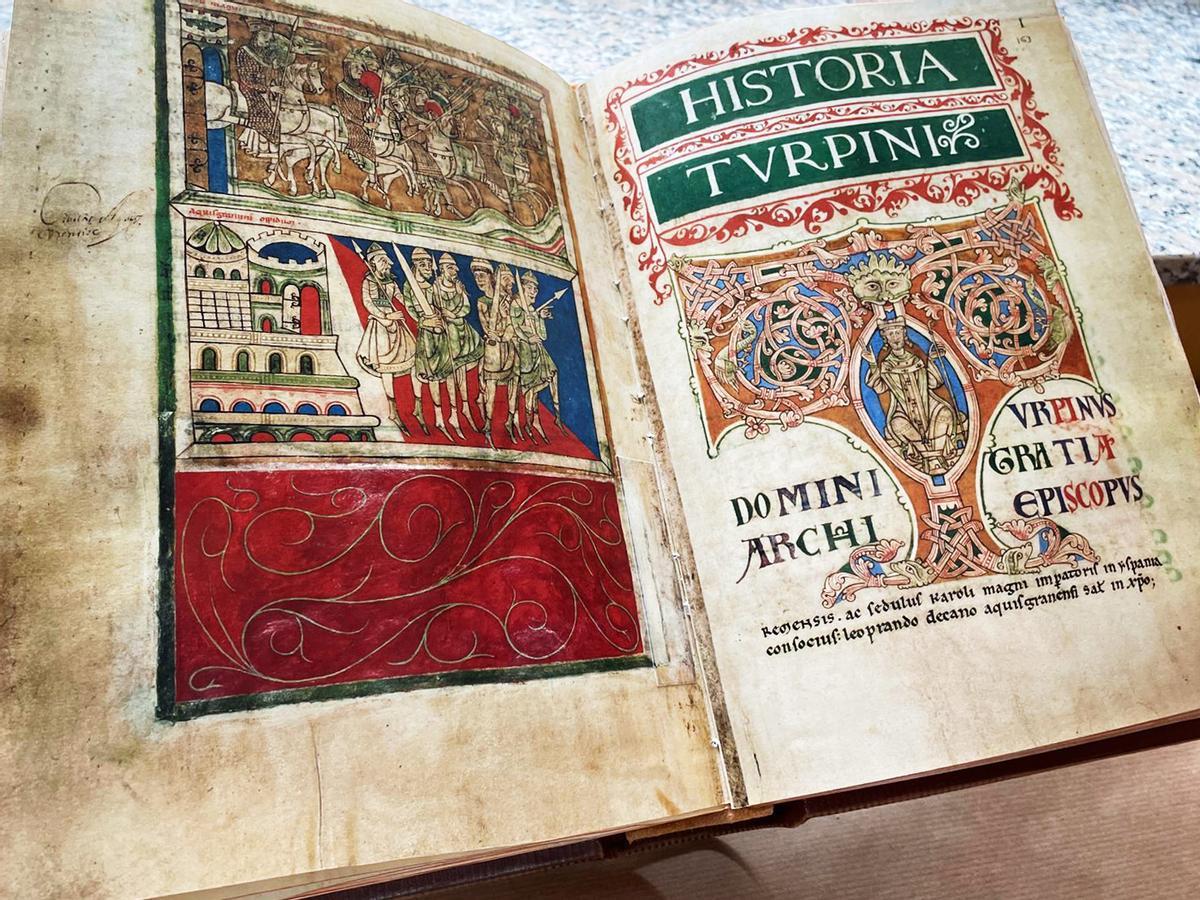 aquisgranum oppidum.
I
163
HISTORIA
TVRPINI
VRPINVS
GRATIA
DOMINI
ARCHI
EPISCOPVS
REMENSIS. ac sedulus Karoli magni impatoris in yspania
consocius: leoprando decano aquisgranensi sał in xp̄o;